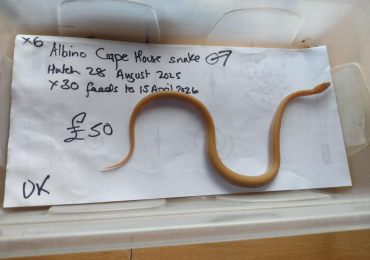 x6
Albino Cape House snake G7
Hatch 28 August 2025
x30 feeds to 15 April 2026
£50
UK